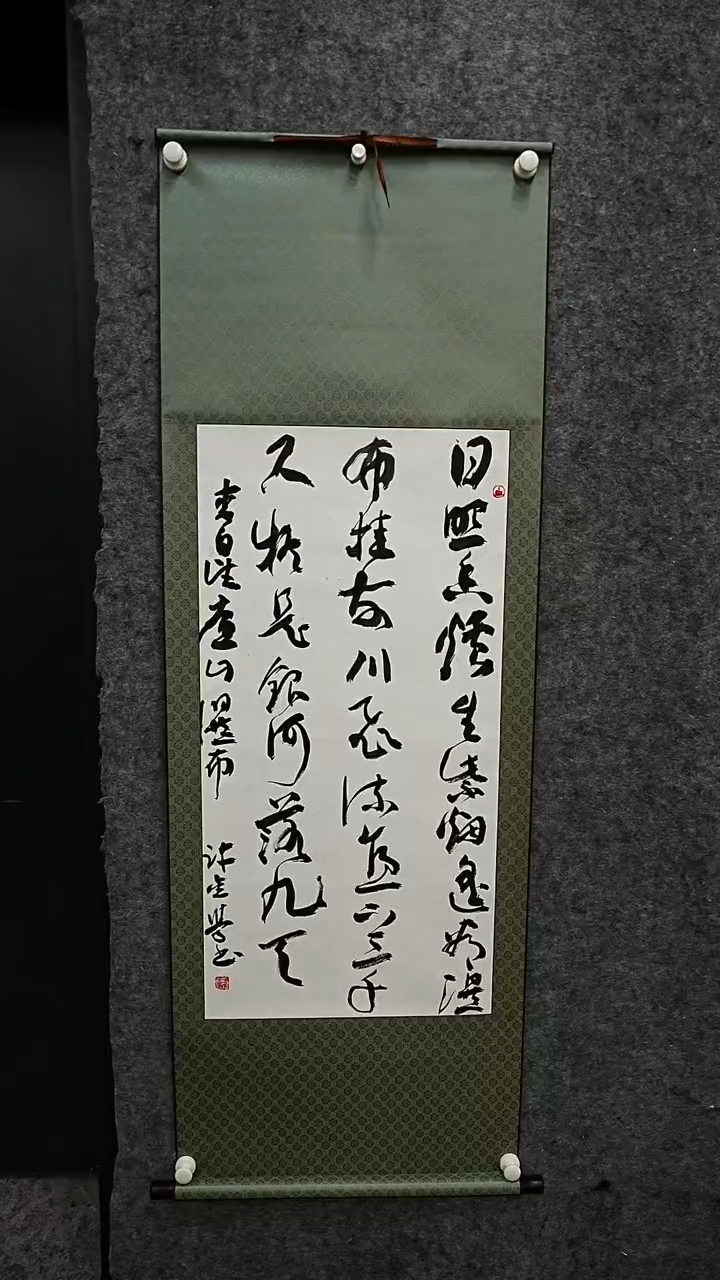 日照香爐生紫烟遥看瀑
布挂前川飛流直下三千
尺疑是銀河落九天
李白望廬山瀑布 许金書